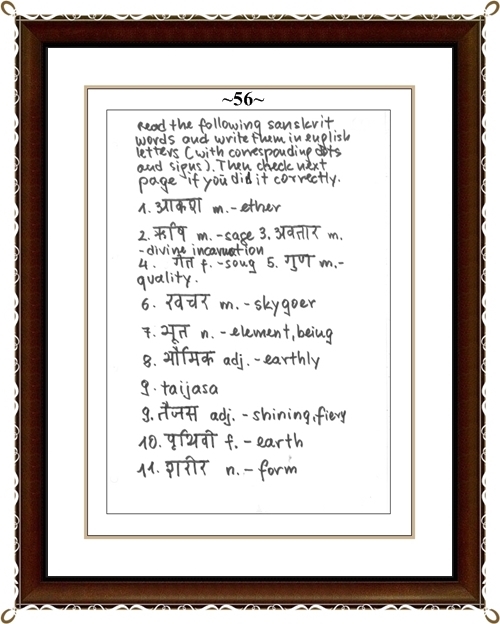 ~56~
Read the following sanskrit
words and write them in english
letters (with corresponding dots
and signs). Then check next
page if you did it correctly.
1. आकाश m. - ether
2. ऋषि m. - sage 3. अवतार m.
- divine incarnation
4. गीत f. - song 5. गुण m. -
quality.
6. खचर m. - skygoer
7. भूत n. - element, being
8. भौमिक adj. - earthly
9. taijasa
9. तैजस adj. - shining, fiery
10. पृथिवी f. - earth
11. शरीर n. - form